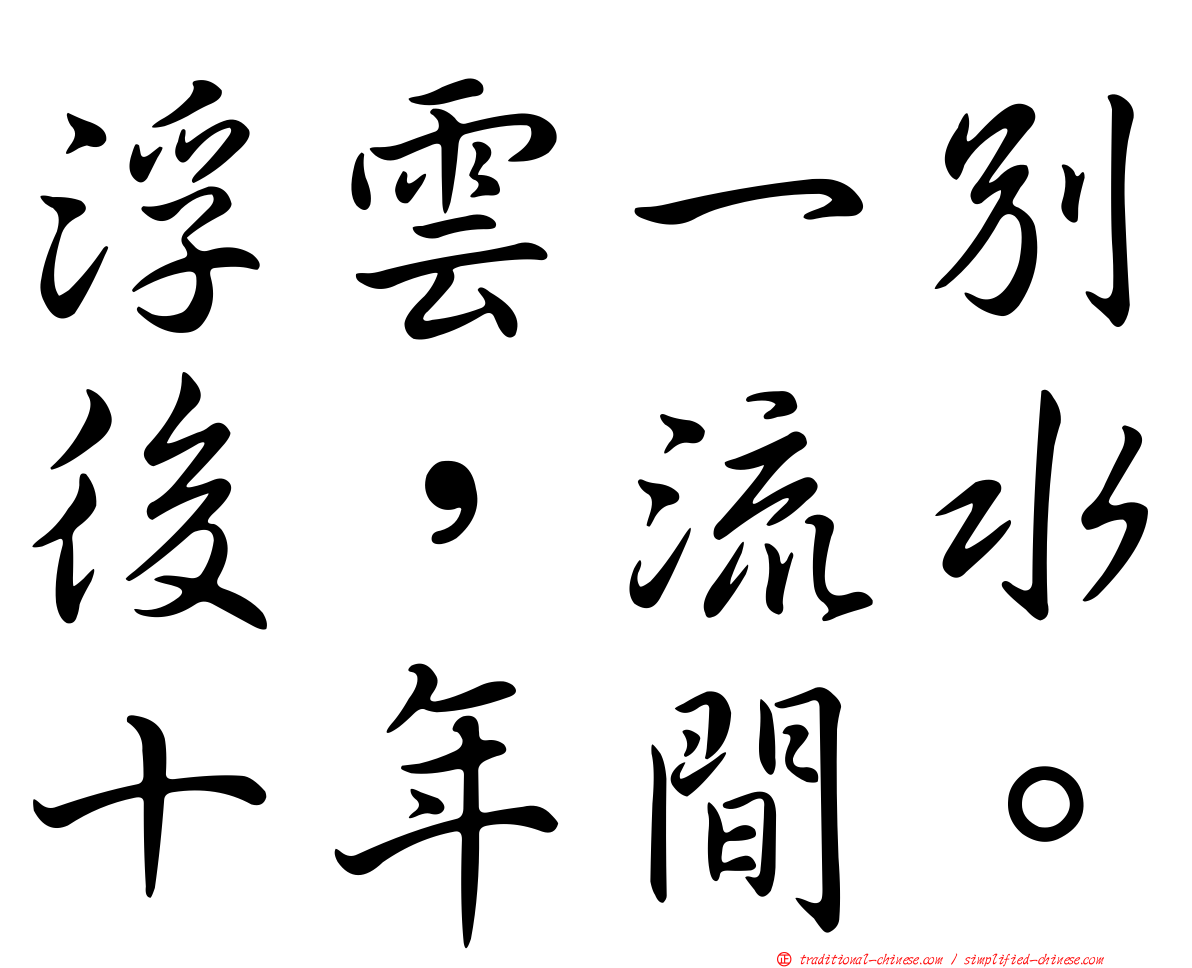 浮雲一別
後，流水
十年間。
正 traditional-chinese.com / simplified-chinese.com